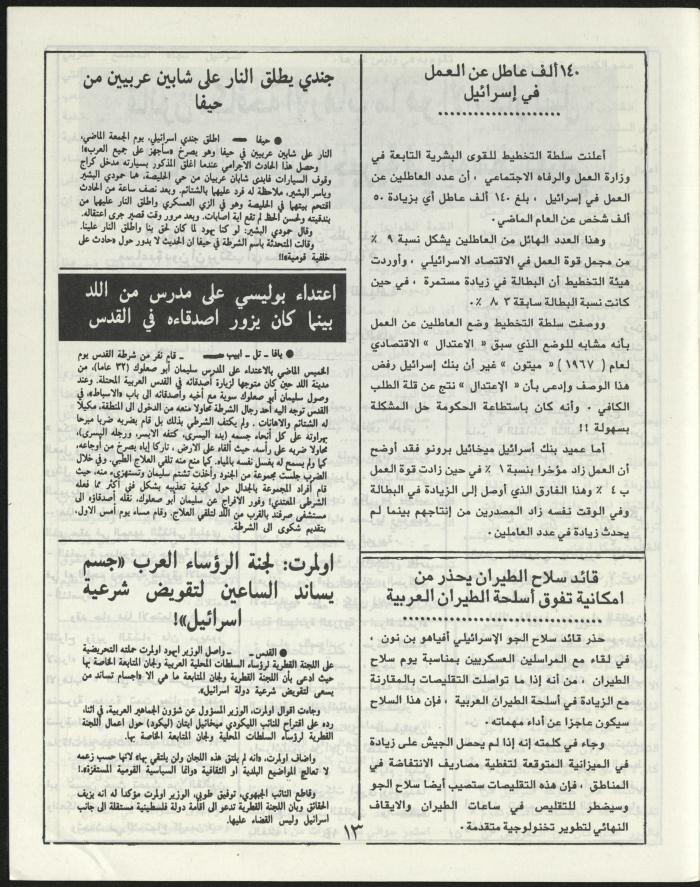 ١٤٠ ألف عاطل عن العمل
في إسرائيل
أعلنت سلطة التخطيط للقوى البشرية التابعة في
وزارة العمل والرفاه الاجتماعي ، أن عدد العاطلين عن
العمل في إسرائيل ، بلغ ١٤٠ ألف عاطل أي بزيادة ٥٠
ألف شخص عن العام الماضي .
وهذا العدد الهائل من العاطلين يشكل نسبة ٩ ٪
من مجمل قوة العمل في الاقتصاد الاسرائيلي ، وأوردت
هيئة التخطيط أن البطالة في زيادة مستمرة ، في حين
كانت نسبة البطالة سابقة ٣ ٫ ٨ ٪ .
ووصفت سلطة التخطيط وضع العاطلين عن العمل
بأنه مشابه للوضع الذي سبق « الاعتدال » الاقتصادي
لعام ( ١٩٦٧ ) « ميتون » غير أن بنك إسرائيل رفض
هذا الوصف وإدعى بأن « الإعتدال » نتج عن قلة الطلب
الكافي . وأنه كان باستطاعة الحكومة حل المشكلة
بسهولة !!
أما عميد بنك أسرائيل ميخائيل برونو فقد أوضح
أن العمل زاد مؤخرا بنسبة ١ ٪ في حين زادت قوة العمل
ب ٤ ٪ وهذا الفارق الذي أوصل إلى الزيادة في البطالة
وفي الوقت نفسه زاد المصدرين من إنتاجهم بينما لم
يحدث زيادة في عدد العاملين .
قائد سلاح الطيران يحذر من
امكانية تفوق أسلحة الطيران العربية
حذر قائد سلاح الجو الإسرائيلي أفياهو بن نون ،
في لقاء مع المراسلين العسكريين بمناسبة يوم سلاح
الطيران ، من أنه إذا ما تواصلت التقليصات بالمقارنة
مع الزيادة في أسلحة الطيران العربية ، فإن هذا السلاح
سيكون عاجزا عن أداء مهماته .
وجاء في كلمته إنه إذا لم يحصل الجيش على زيادة
في الميزانية المتوقعة لتغطية مصاريف الانتفاضة في
المناطق ، فإن هذه التقليصات ستصيب أيضا سلاح الجو
وسيضطر للتقليص في ساعات الطيران والايقاف
النهائي لتطوير تخنولوجية متقدمة .
جندي يطلق النار على شابين عربيين من
حيفا
● حيفا — اطلق جندي اسرائيلي، يوم الجمعة الماضي،
النار على شابين عربيين في حيفا وهو يصرخ «سأجهز على جميع العرب»!
وحصل هذا الحادث الاجرامي عندما اغلق المذكور بسيارته مدخل كراج
وقوف السيارات فابدى شابان عربيان من حي الحليصة، هما حمودي البشير
وياسر البشير، ملاحظة له فرد عليهما بالشتائم. وبعد نصف ساعة من الحادث
اقتحم بيتهما في الحليصة وهو في الزي العسكري واطلق النار عليهما من
بندقيته ولحسن الحظ لم تقع اية اصابات. وبعد مرور وقت قصير جرى اعتقاله.
وقال حمودي البشير: لو كنا يهود لما كان لحق بنا واطلق النار علينا.
وقالت المتحدثة باسم الشرطة في حيفا ان الحديث لا يدور حول «حادث على
خلفية قومية»!!
اعتداء بوليسي على مدرس من اللد
بينما كان يزور اصدقاءه في القدس
● يافا - تل - ابيب — قام نفر من شرطة القدس يوم
الخميس الماضي بالاعتداء على المدرس سليمان أبو صعلوك (٣٢ عاما)، من
مدينة اللد حين كان متوجها لزيارة أصدقائه في القدس العربية المحتلة. وعند
وصول سليمان أبو صعلوك سوية مع أخيه وأصدقائه الى باب «الاسباط»، في
القدس توجه اليه أحد رجال الشرطة محاولا منعه من الدخول الى المنطقة، مكيلا
له الشتائم والاهانات. ولم يكتف الشرطي بذلك بل قام بضربه ضربا مبرحا
بهراوته على كل أنحاء جسمه (يده اليسرى، كتفه الايسر، ورجله اليسرى)،
محاولا ضربه على رأسه، حيث ألقاه على الارض. تاركا إياه يصرخ من أوجاعه،
كما ولم يسمح له بغسل نفسه بالمياه. كما منع منه تلقي العلاج الطبي. وفي خلال
الضرب جلست مجموعة من الجنود وأخذت تشتم سليمان وتستهزىء منه، حيث
قام أفراد المجموعة بالجدال حول كيفية تعذيبه بشكل فني أكثر مما فعله
الشرطي المعتدي! وفور الافراج عن سليمان أبو صعلوك، نقله أصدقاؤه الى
مستشفى صرفند بالقرب من اللد لتلقي العلاج. وقام مساء يوم أمس الاول،
بتقديم شكوى الى الشرطة.
اولمرت: لجنة الرؤساء العرب «جسم
يساند الساعين لتقويض شرعية
اسرائيل»!
● القدس - - واصل الوزير ايهود اولمرت حملته التحريضية
على اللجنة القطرية لرؤساء السلطات المحلية العربية ولجان المتابعة الخاصة بها
حيث ادعى بأن اللجنة القطرية ولجان المتابعة ما هي الا «اجسام تساند من
يسعى لتقويض شرعية دولة اسرائيل».
وجاءت اقوال اولمرت، الوزير المسؤول عن شؤون الجماهير العربية، في اثناء
رده على اقتراح للنائب الليكودي ميخائيل ايتان (ليكود) حول اعمال اللجنة
القطرية لرؤساء السلطات المحلية ولجان المتابعة الخاصة بها.
واضاف اولمرت، «انه لم يلتق هذه اللجان ولن يلتقي بها» لانها حسب زعمه
لا تعالج المواضيع البلدية أو الثقافية «وانما السياسية القومية المستفزة»!.
وقاطع النائب الجبهوي، توفيق طوبي، الوزير اولمرت مؤكدا له انه يزيف
الحقائق وبان اللجنة القطرية تدعو الى اقامة دولة فلسطينية مستقلة الى جانب
اسرائيل وليس القضاء عليها.
١٣